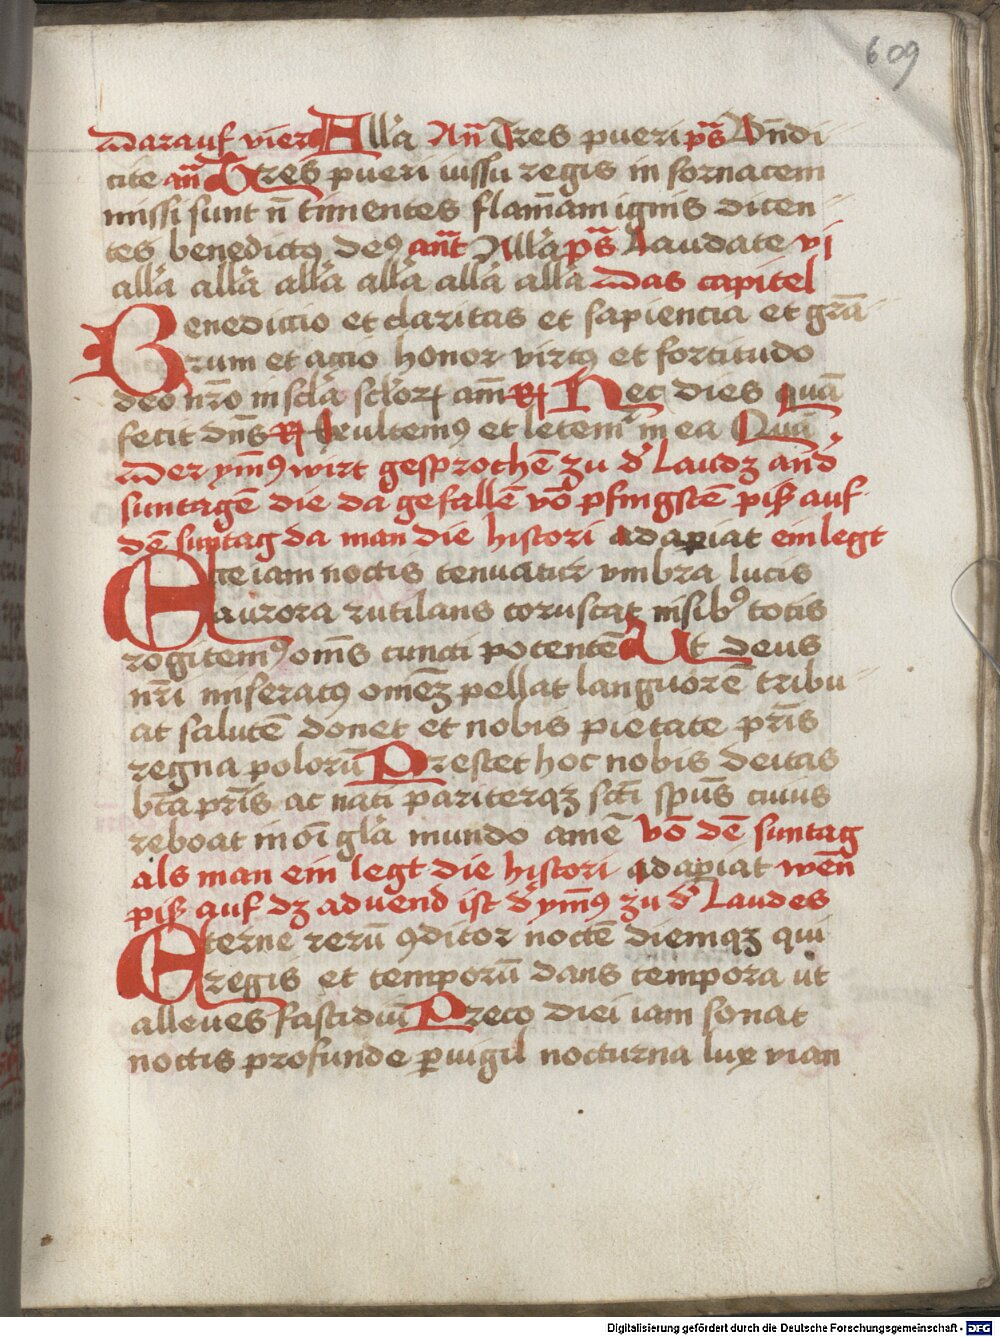 609
Darauf vier Alla Añ Tres pueri ps̃ Bñdi
cite añ Tres pueri iussu regis in fornacem
missi sunt ñ timentes flam̃am ignis dicen
tes benedictꝰ deꝰ ant̃ Alla ps̃ Laudate vi
alla alla alla alla alla alla Das capitel
Benedictio et claritas et sapiencia et gr̃a
rum et actio honor virtꝰ et fortitudo
deo nr̃o in scl̃a scl̃oꝝ am̃ ꝶ Hec dies quā
fecit dn̄s ꝶ Exultemꝰ et letemꝰ in ea Quā
Der ym̃ꝰ wirt gesprochē zu dˀ Laudꝫ an d̄
suntagē die da gefallē vō pfingstē piß auf
dē suntag da man die histori adapiat einlegt
Ecce iam noctis tenuatur vmbra lucis
aurora rutilans coruscat nisibꝰ totis
rogitemꝰ om̃s cuncti potentē Ut deus
nr̃i miseratꝰ omēꝫ pellat languorē tribu
at salutē donet et nobis pietate pr̃is
regna polorū Prestet hoc nobis deitas
bt̃a pr̃is ac nati pariterqꝫ sct̃i sp̃us cuius
reboat in oī gl̃a mundo amē Vō dē suntag
als man ein legt die histori adapiat wen̄
piß auf dꝫ aduend ist d̄ ym̃ꝰ zu dˀ Laudes
Eterne rerū ꝯditor noctē diemqꝫ qui
regis et temporū dans tempora ut
alleues fastidiū Preco diei iam sonat
noctis profunde ꝑuigil nocturna lux vian
Digitalisierung gefördert durch die Deutsche Forschungsgemeinschaft - DFG